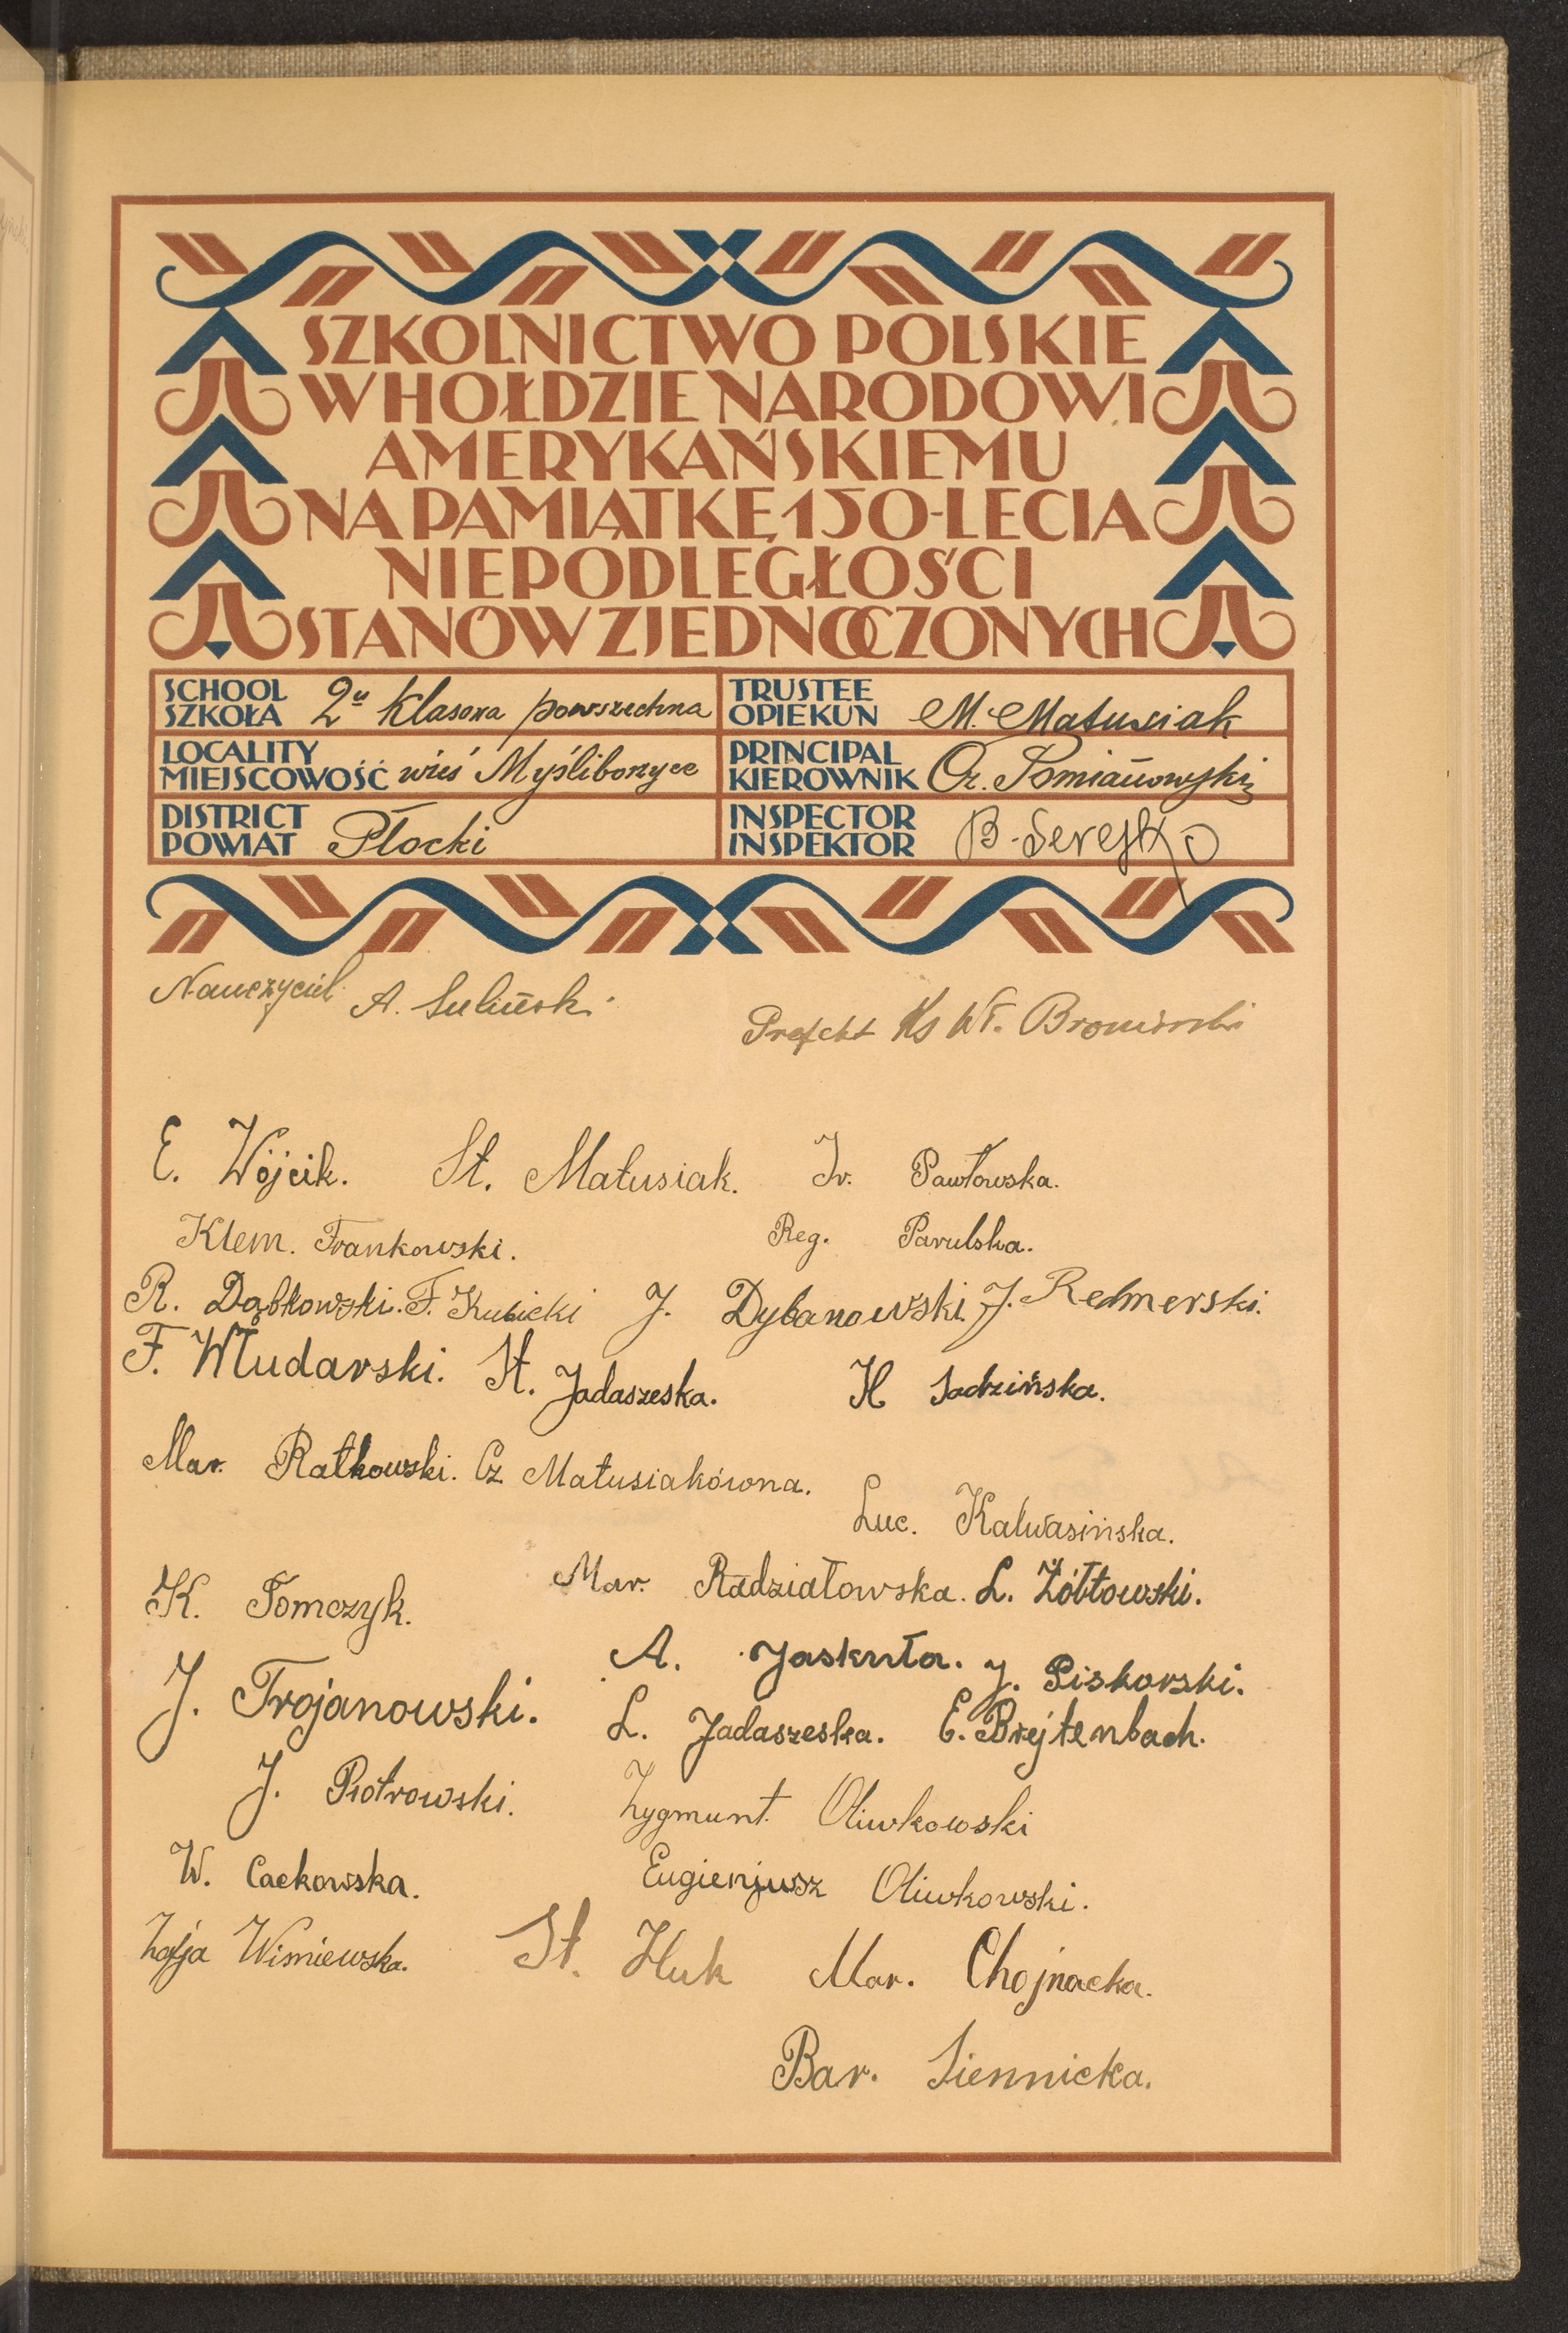 SZKOLNICTWO POLSKIE
W HOŁDZIE NARODOWI
AMERYKAŃSKIEMU
NA PAMIĄTKĘ 150-LECIA
NIEPODLEGŁOŚCI
STANÓW ZJEDNOCZONYCH
SCHOOL
SZKOŁA 2u klasowa powszechna
TRUSTEE
OPIEKUN M. Matusiak
LOCALITY
MIEJSCOWOŚĆ wieś Myśliborzyce
PRINCIPAL
KIEROWNIK Cz. Pomianowski
DISTRICT
POWIAT Płocki
INSPECTOR
INSPEKTOR B. Serejko
Nauczyciel A. Suliński
Prefekt Ks Wł.
E. Wójcik. St. Matusiak. Ir. Pawłowska.
Klem. Frankowski. Reg. Parulska.
R. Dąbkowski. F. Kubicki J. Dybanowski. J. Redmerski.
F. Włudarski. St. Jadaszeska. H Sadzińska.
Mar. Ratkowski. Cz Matusiakówna.
Luc. Kalwasińska.
K. Tomczyk. Mar. Radziałowska. L. Żółtowski.
A. Jaskuła. J. Piskorski.
J. Trojanowski. L. Jadaszeska. E. Brejtenbach.
J. Piotrowski. Zygmunt Oliwkowski
W. Cackowska. Eugienjusz Oliwkowski.
Zofja Wiśniewska. St. Huk Mar. Chojnacka.
Bar. Siennicka.